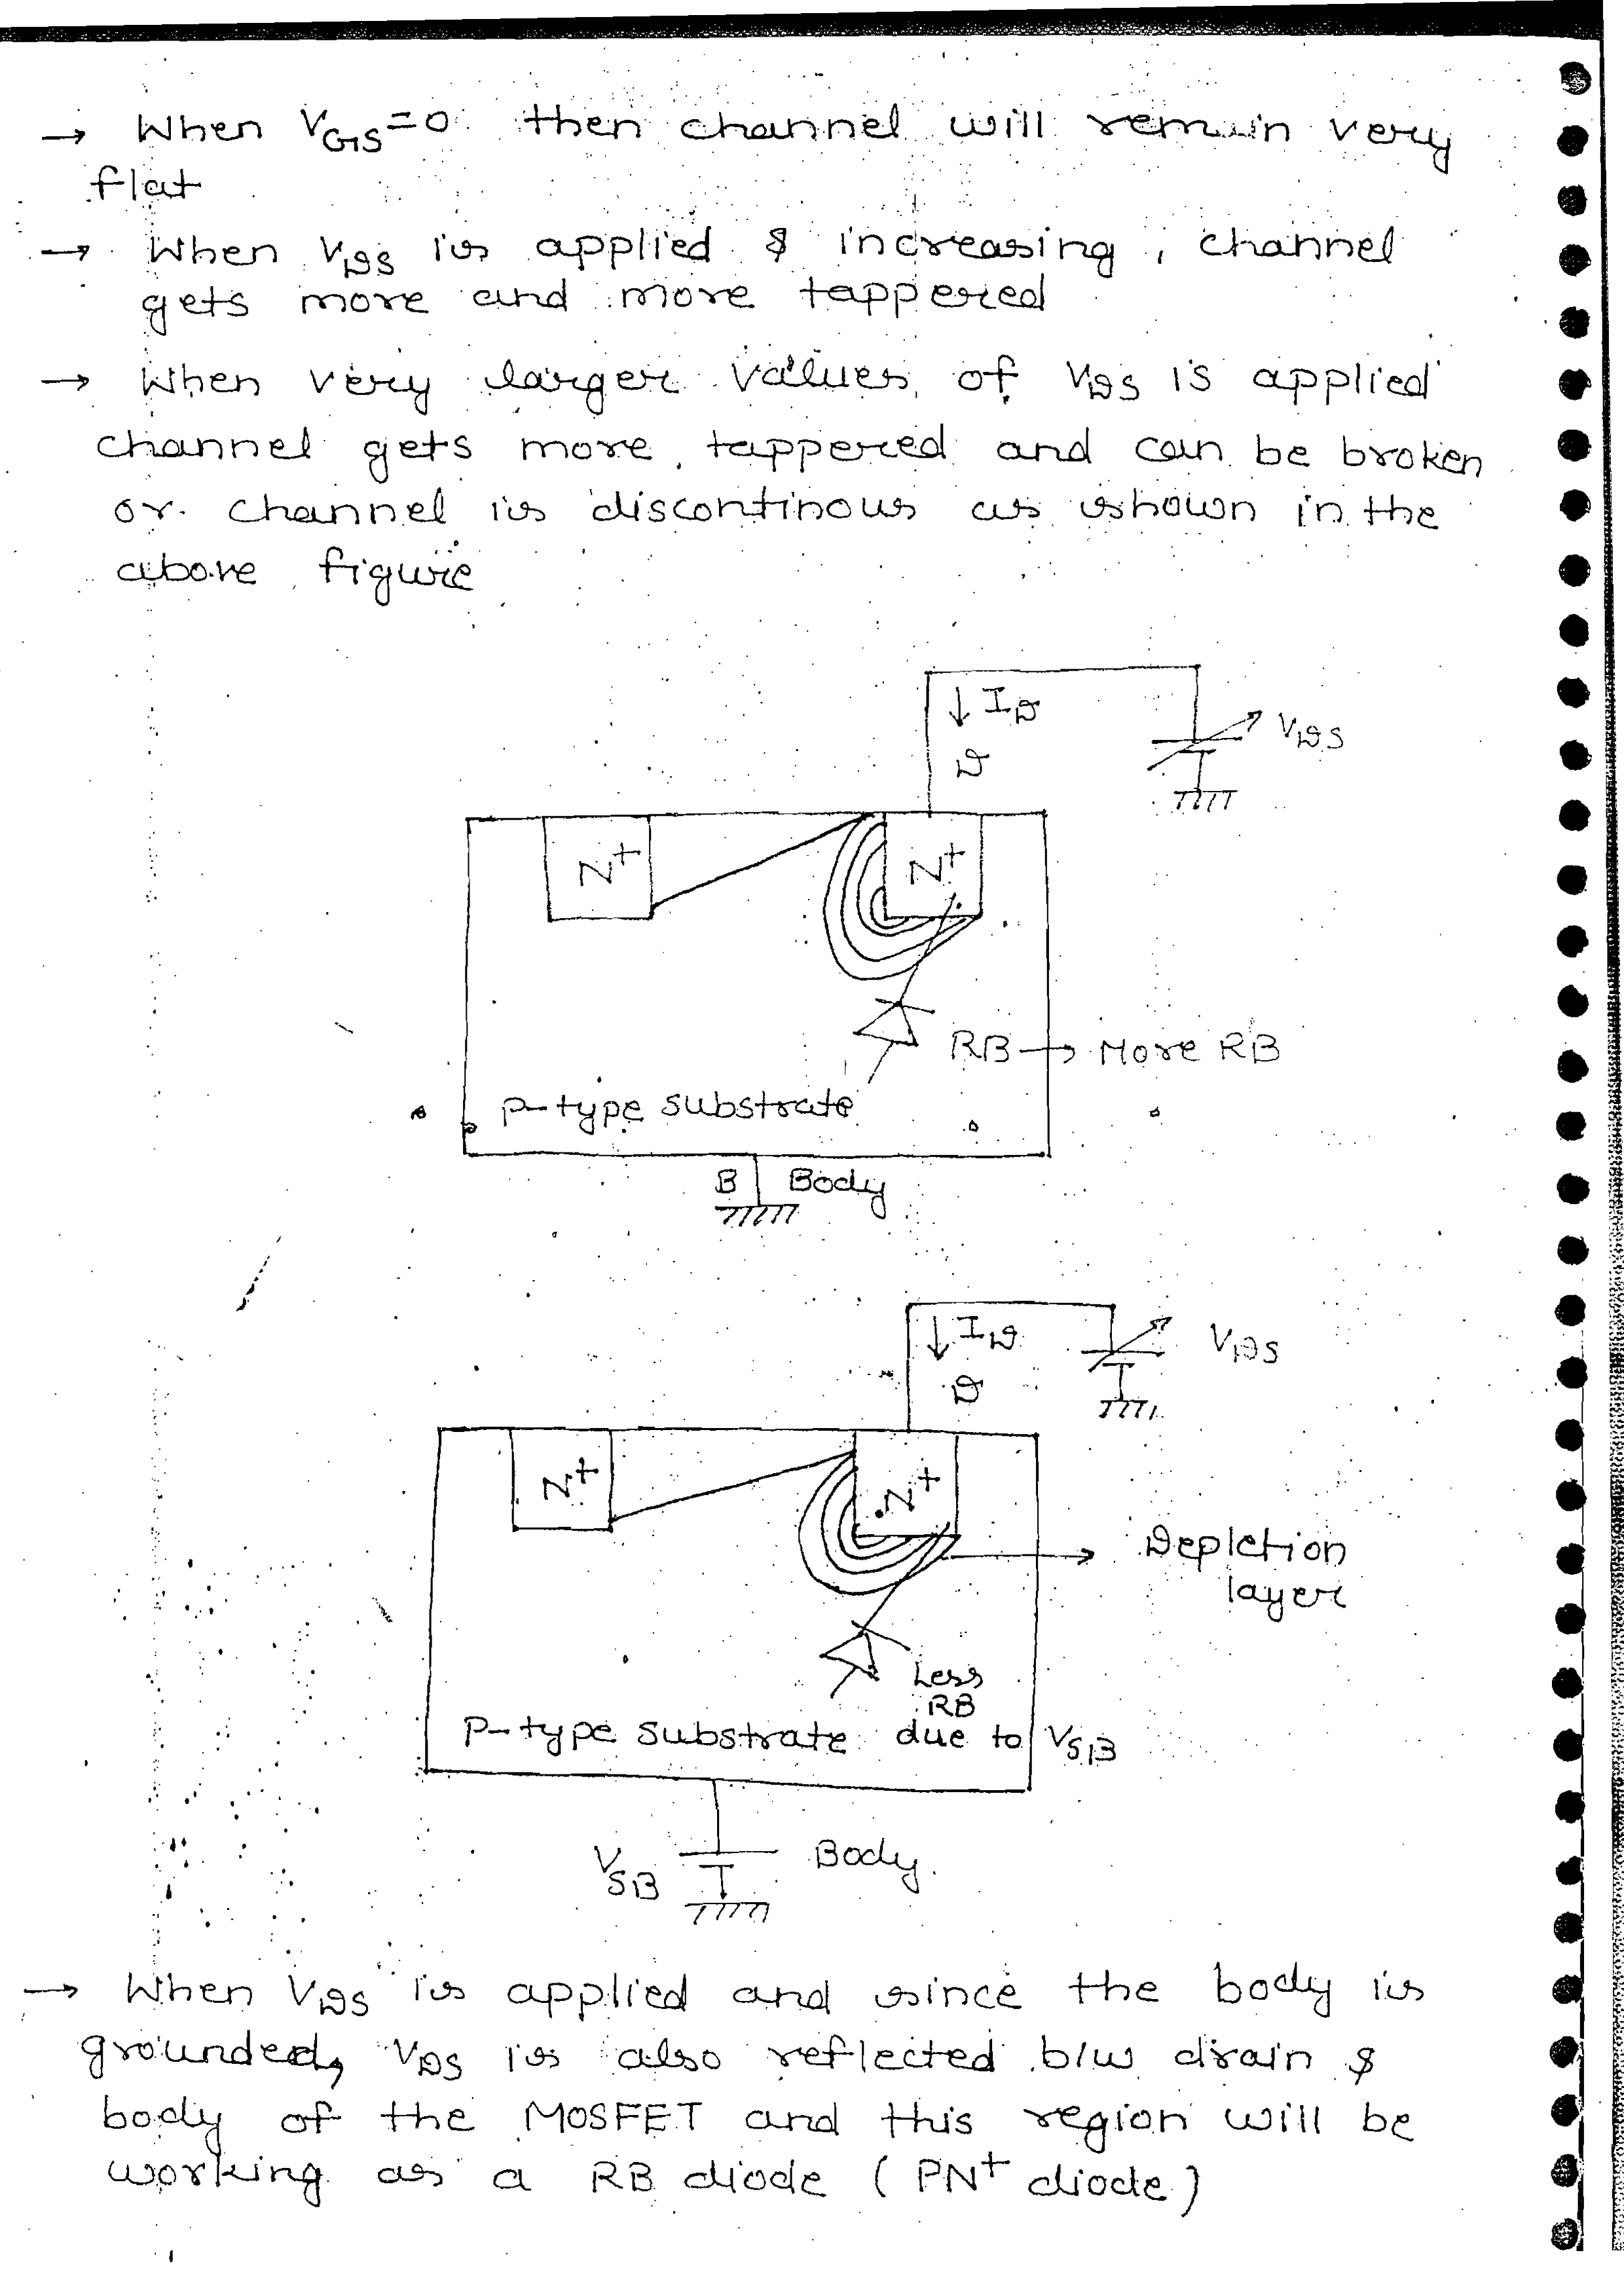 → When VGS=0 then channel will remain very
flat
→ When VDS is applied & increasing, channel
gets more and more tappered
→ When very larger values of VDS is applied
channel gets more tappered and can be broken
or channel is discontinous as shown in the
above figure
↓ ID
VDS
D
N+
N+
RB → More RB
P-type substrate
B Body
↓ ID
VDS
D
N+
N+
Depletion
layer
Less
RB
P-type substrate due to VSB
VSB Body
→ When VDS is applied and since the body is
grounded, VDS is also reflected b/w drain &
body of the MOSFET and this region will be
working as a RB diode (PN+ diode)